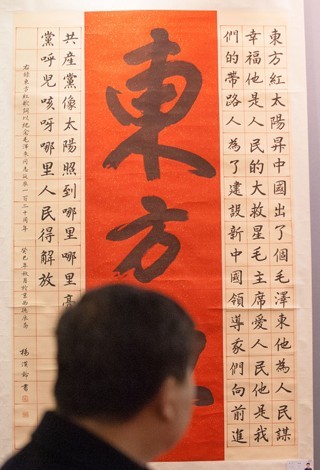 東方紅太陽昇中國出了個毛澤東他為人民謀
幸福他是人民的大救星毛主席愛人民他是我
們的帶路人為了建設新中國領導我們向前進
東方
共產黨像太陽照到哪里哪里亮
黨呼兒咳呀哪里人民得解放
右錄東方紅歌詞以紀念毛澤東同志誕辰一百二十周年
癸巳年秋月於京西
楊漢 書